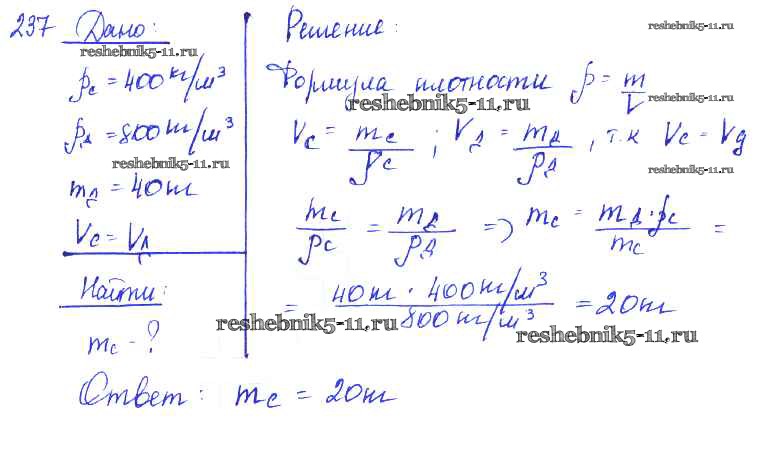 237 Дано:
reshebnik5-11.ru
ρс = 400 кг/м³
ρд = 800 кг/м³
reshebnik5-11.ru
mд = 40 кг
Vс = Vд
Найти:
mс - ?
Решение:
reshebnik5-11.ru
Формула плотности ρ = m/V
reshebnik5-11.ru
reshebnik5-11.ru
Vс = mс/ρс ; Vд = mд/ρд , т.к Vс = Vд
reshebnik5-11.ru
mс/ρс = mд/ρд => mс = mд·ρс/mс =
= 40 кг · 400 кг/м³ / 800 кг/м³ = 20 кг
reshebnik5-11.ru
reshebnik5-11.ru
Ответ: mс = 20 кг